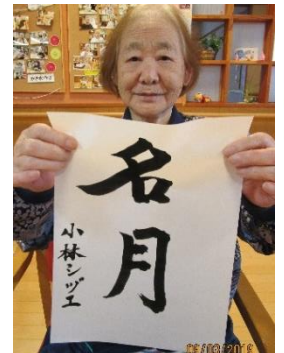 名月
小林シヅエ